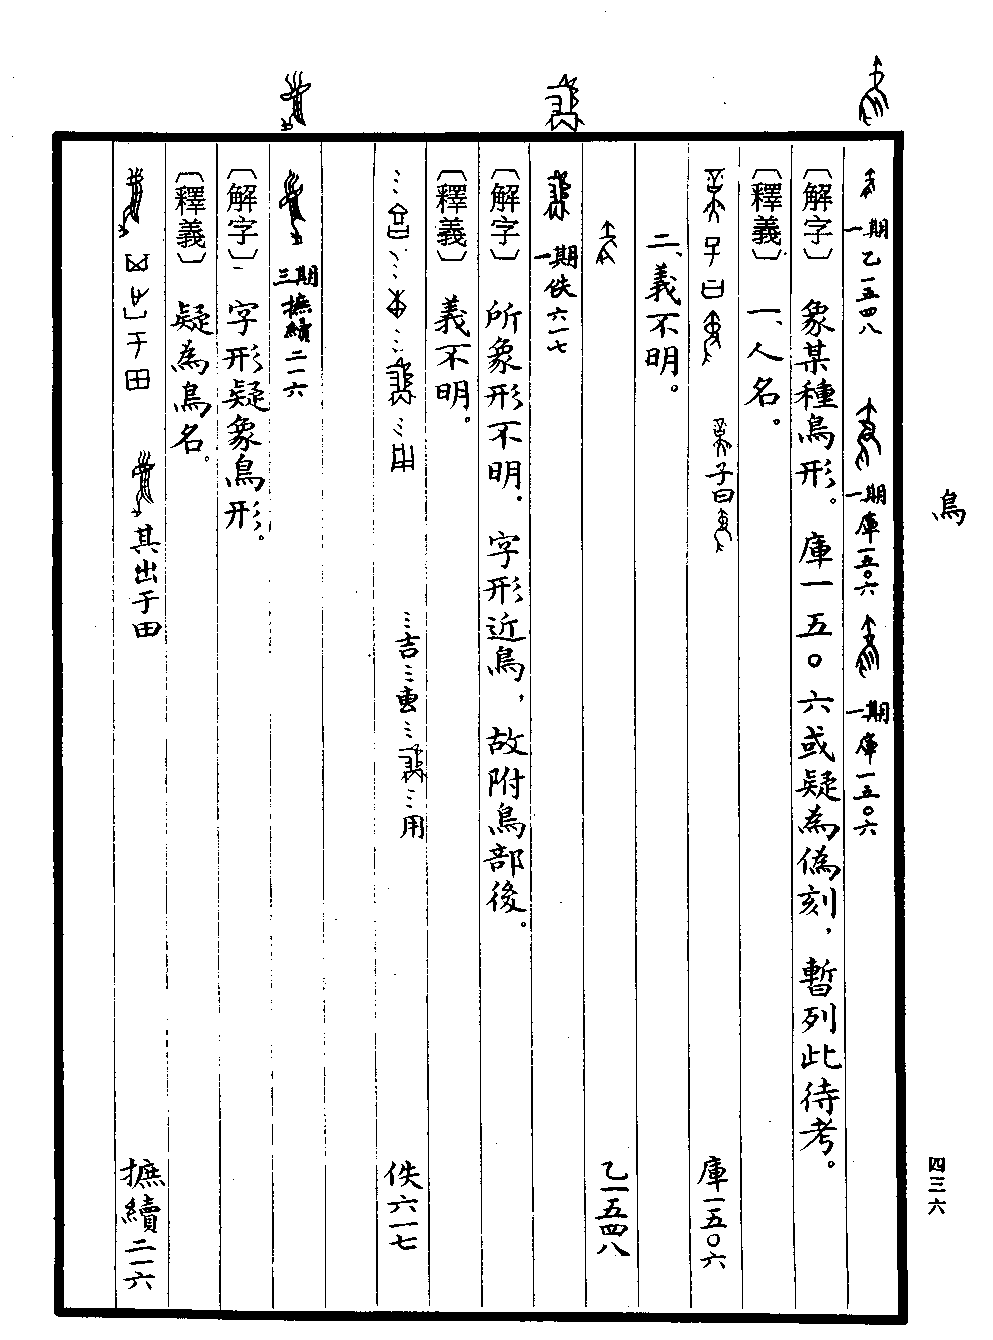 鳥
四三六
一期乙一五四八 一期庫一五〇六 一期庫一五〇六
〔解字〕 象某種鳥形。 庫一五〇六或疑為偽刻，暫列此待考。
〔釋義〕 一、人名。
子曰 庫一五〇六
二、義不明。
乙一五四八
一期佚六一七
〔解字〕 所象形不明。字形近鳥，故附鳥部後。
〔釋義〕 義不明。
…吉…叀…用 佚六一七
三期摭續二一六
〔解字〕 字形疑象鳥形。
〔釋義〕 疑為鳥名。
其出于田 摭續二一六